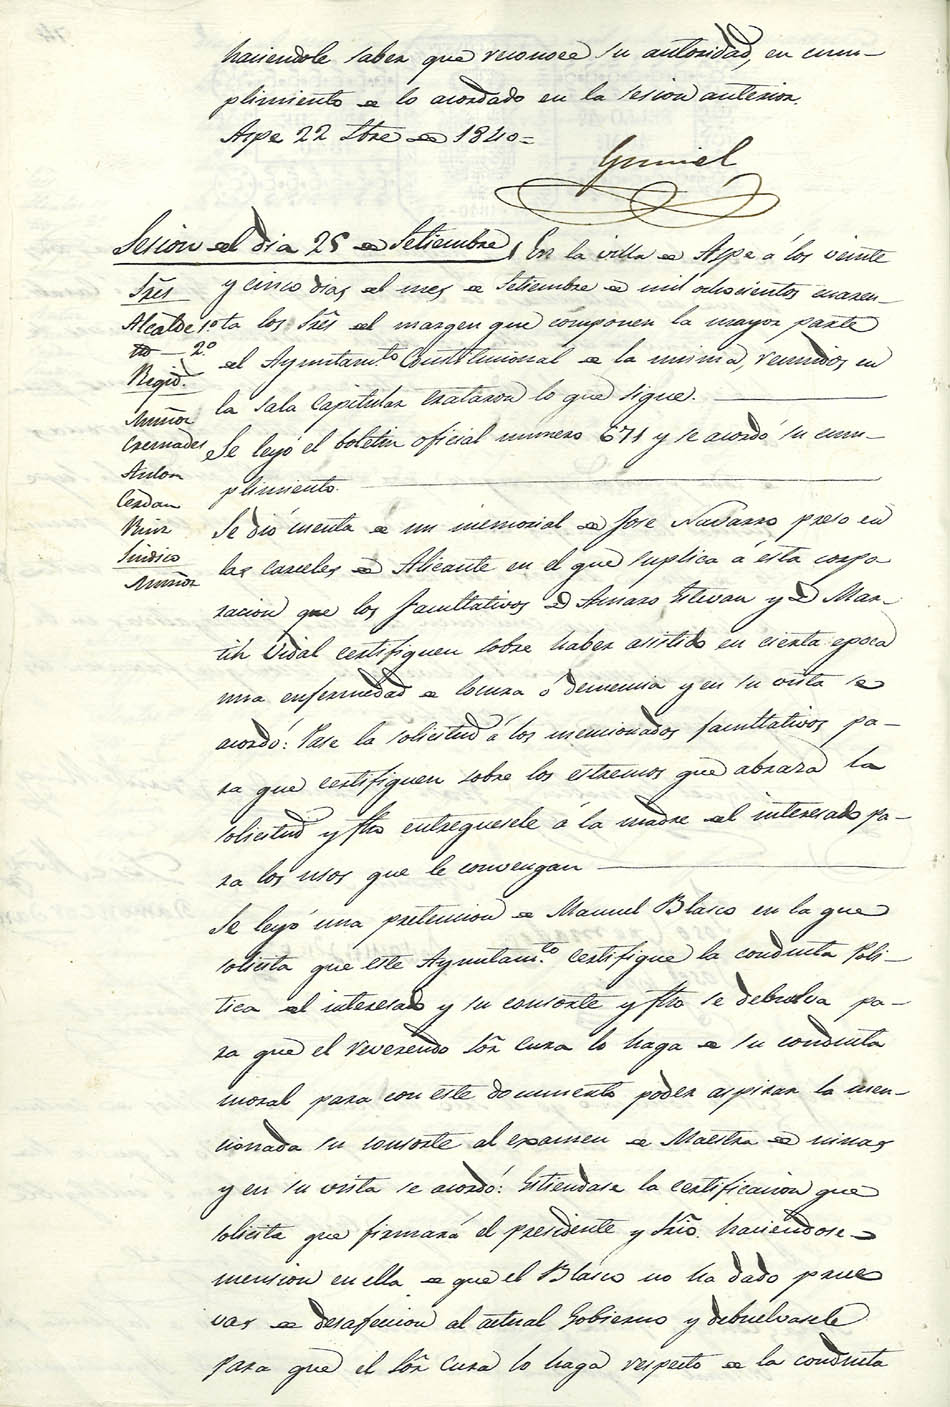 haciendole saber que reconoce su autoridad, en cum-
plimiento de lo acordado en la sesion anterior.
Aspe 22 Stbre de 1840=
Gumiel
Sesion del dia 25 de Setiembre
En la villa de Aspe á los veinte
y cinco dias del mes de Setiembre de mil ochocientos cuaren-
ta los Sres del margen que componen la mayor parte
del Ayuntamto Constitucional de la misma, reunidos en
la sala capitular trataron lo que sigue.
Sres
Alcalde 1º
2º
Regidr
Muñoz
Cremades
Anton
Cerdan
Ruiz
Sindico
Muñoz
Se leyó el boletin oficial numero 671 y se acordó su cum-
plimiento.
Se dió cuenta de un memorial de Jose Navarro preso en
las carceles de Alicante en el que suplica á esta corpo
racion que los facultativos D Amaro Estevan y D Mar-
tin Vidal certifiquen sobre haber asistido en cierta epoca
una enfermedad de locura ó demencia y en su vista se
acordó: Pase la solicitud á los mencionados facultativos pa-
ra que certifiquen sobre los estremos que abraza la
solicitud y fho entreguesele á la madre del interesado pa-
ra los usos que le convengan
Se leyó una pretencion de Manuel Blasco en la que
solicita que este Ayuntamto certifique la conducta Poli-
tica del interesado y su consorte y fho se debuelva pa-
ra que el reverendo Sor Cura lo haga de su conducta
moral para con este documento poder aspirar la men-
cionada su consorte al examen de Maestra de niñas
y en su vista se acordó: Estiendase la certificacion que
solicita que firmará el presidente y Srio. haciendose
mension en ella de que el Blasco no ha dado prue
vas de desafeccion al actual Gobierno y debuelvasele
para que el Sor Cura lo haga respecto de la conducta